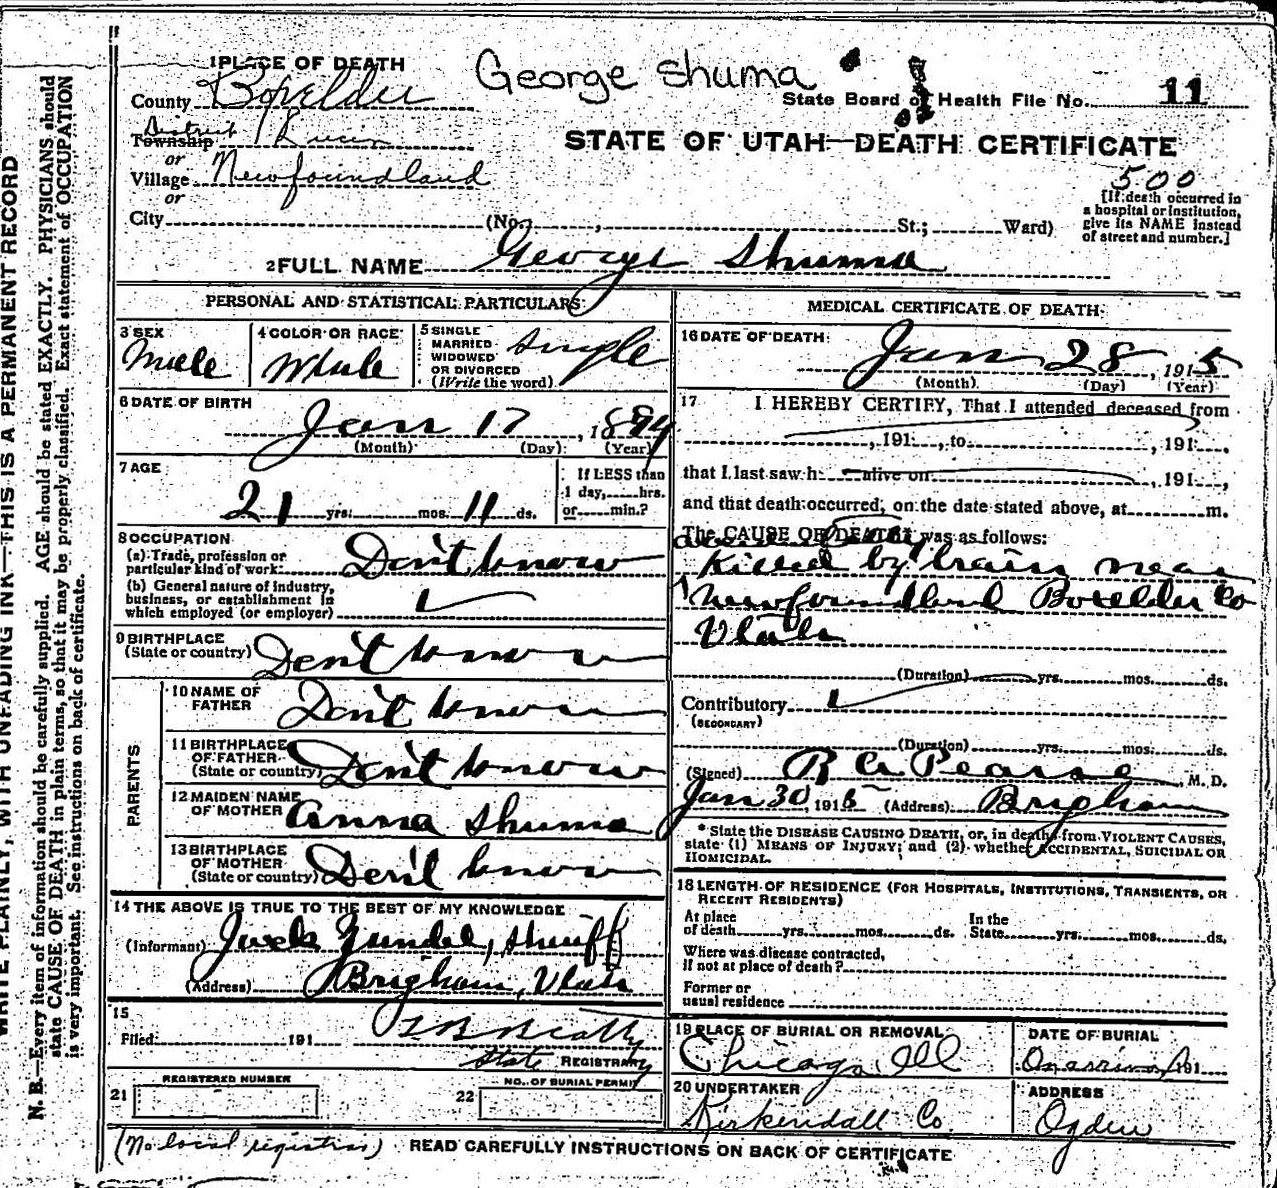 George Shuma
1 PLACE OF DEATH
County Boxelder
State Board of Health File No. 11
District Lucin
Township
or
Village Newfoundland
or
City (No. , St.; Ward)
STATE OF UTAH—DEATH CERTIFICATE
500
[If death occurred in
a hospital or institution,
give its NAME instead
of street and number.]
2 FULL NAME George Shuma
PERSONAL AND STATISTICAL PARTICULARS
3 SEX
Male
4 COLOR OR RACE
White
5 SINGLE
MARRIED
WIDOWED
OR DIVORCED
(Write the word)
Single
6 DATE OF BIRTH
Jan 17, 1894
(Month) (Day) (Year)
7 AGE
21 yrs. mos. 11 ds.
If LESS than
1 day, hrs.
or min.?
8 OCCUPATION
(a) Trade, profession or
particular kind of work Don't know
(b) General nature of industry,
business, or establishment in
which employed (or employer)
9 BIRTHPLACE
(State or country) Don't know
PARENTS
10 NAME OF
FATHER Don't know
11 BIRTHPLACE
OF FATHER
(State or country) Don't know
12 MAIDEN NAME
OF MOTHER Anna Shuma
13 BIRTHPLACE
OF MOTHER
(State or country) Don't know
14 THE ABOVE IS TRUE TO THE BEST OF MY KNOWLEDGE
(Informant) Sheriff
(Address) Brigham, Utah
15
Filed 191
State REGISTRAR
21 REGISTERED NUMBER
22 NO. OF BURIAL PERMIT
MEDICAL CERTIFICATE OF DEATH
16 DATE OF DEATH
Jan 28, 1915
(Month) (Day) (Year)
17 I HEREBY CERTIFY, That I attended deceased from
, 191 , to , 191 ,
that I last saw h alive on , 191 ,
and that death occurred, on the date stated above, at m.
The CAUSE OF DEATH was as follows:
Killed by train near
Newfoundland Boxelder Co
Utah
(Duration) yrs. mos. ds.
Contributory
(SECONDARY)
(Duration) yrs. mos. ds.
(Signed) R A Pearse, M. D.
Jan 30, 1915 (Address) Brigham
* State the DISEASE CAUSING DEATH, or, in deaths from VIOLENT CAUSES,
state (1) MEANS OF INJURY; and (2) whether ACCIDENTAL, SUICIDAL OR
HOMICIDAL.
18 LENGTH OF RESIDENCE (FOR HOSPITALS, INSTITUTIONS, TRANSIENTS, OR
RECENT RESIDENTS)
At place
of death yrs. mos. ds.
In the
State yrs. mos. ds.
Where was disease contracted,
if not at place of death?
Former or
usual residence
19 PLACE OF BURIAL OR REMOVAL
Chicago Ill
DATE OF BURIAL
On arrival 191
20 UNDERTAKER
Kirkendall Co.
ADDRESS
Ogden
(No local registrar) READ CAREFULLY INSTRUCTIONS ON BACK OF CERTIFICATE
WRITE PLAINLY, WITH UNFADING INK—THIS IS A PERMANENT RECORD
N. B.—Every item of information should be carefully supplied. AGE should be stated EXACTLY. PHYSICIANS should
state CAUSE OF DEATH in plain terms, so that it may be properly classified. Exact statement of OCCUPATION
is very important. See instructions on back of certificate.